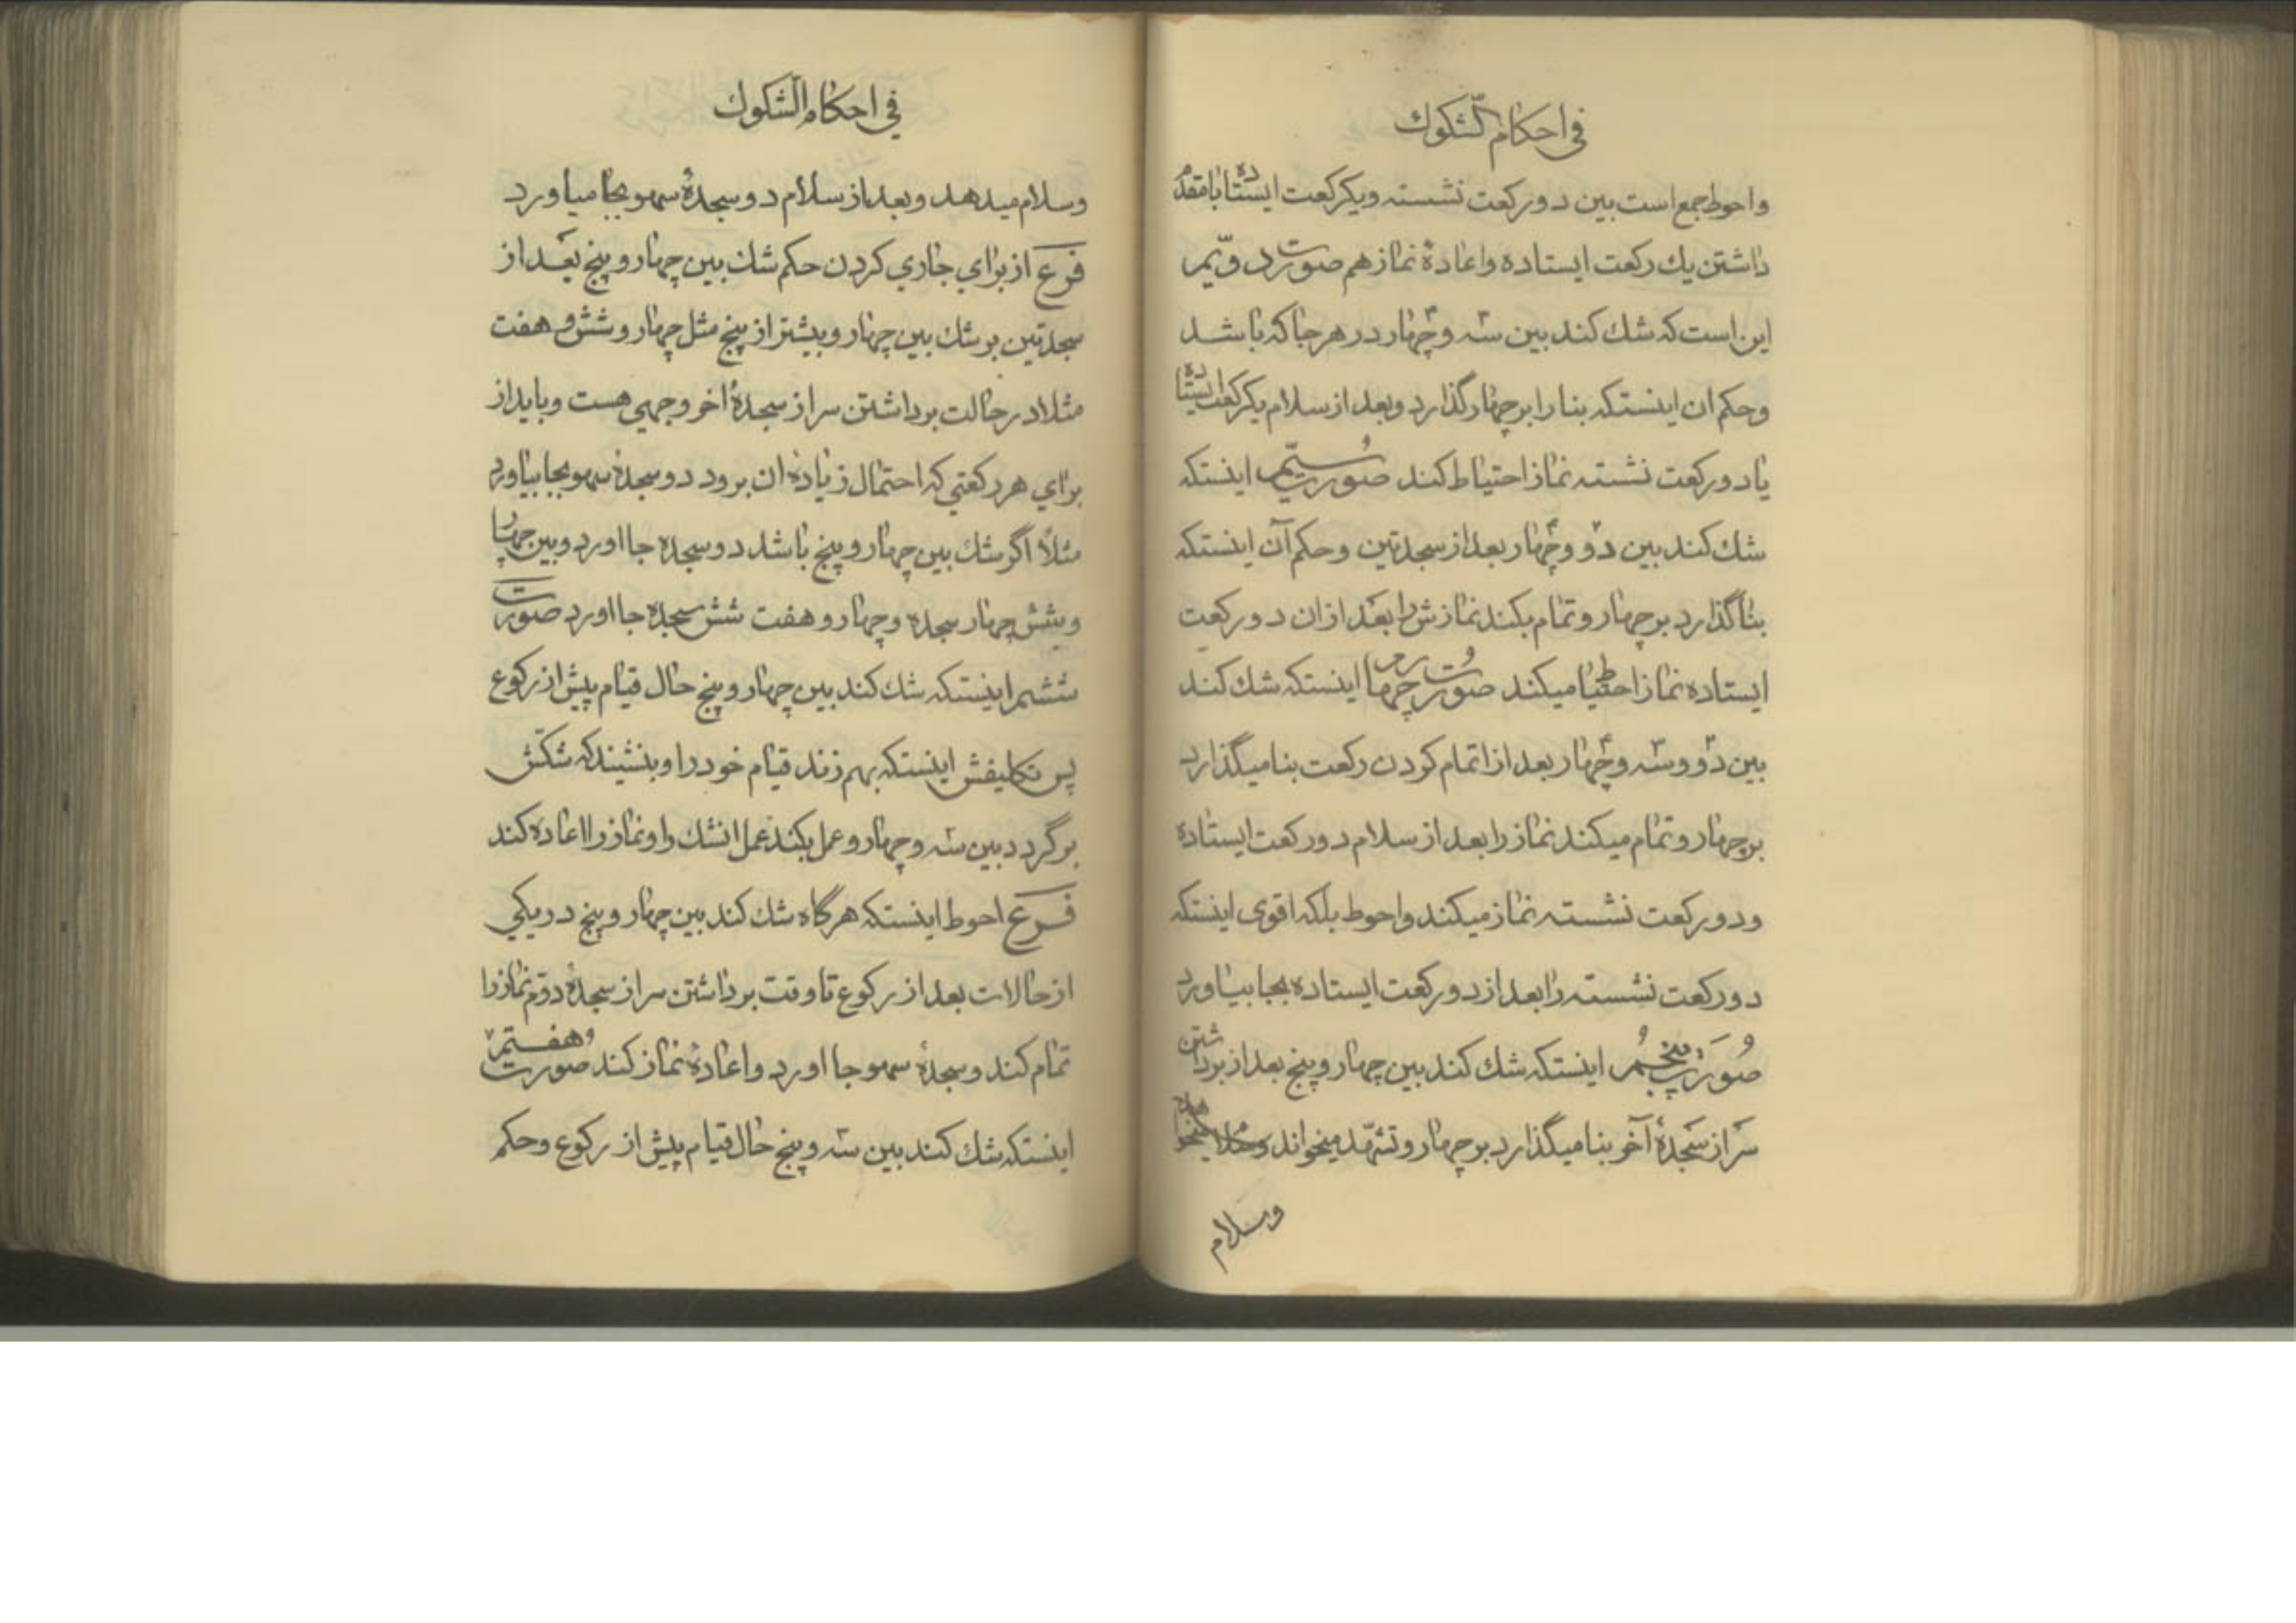 في احكام الشكوك
واحوط جمع است بين دو ركعت نشسته ويكركعت ايستاده با مقدم
داشتن يك ركعت ايستاده واعادۀ نماز هم صورت دويّم
اين است كه شك كند بين سه وچهار در هر جا كه باشد
وحكم ان اينستكه بنا را بر چهار گذارد وبعد از سلام يكركعت ايستاده
يا دو ركعت نشسته نماز احتياط كند صورت سيّم اينستكه
شك كند بين دو وچهار بعد از سجدتين وحكم آن اينستكه
بنا گذارد بر چهار وتمام بكند نمازش را بعد از ان دو ركعت
ايستاده نماز احتياط ميكند صورت چهارم اينستكه شك كند
بين دو وسه وچهار بعد از اتمام كردن ركعت بنا ميگذارد
بر چهار وتمام ميكند نماز را بعد از سلام دو ركعت ايستاده
ودو ركعت نشسته نماز ميكند واحوط بلكه اقوى اينستكه
دو ركعت نشسته را بعد از دو ركعت ايستاده بجا بياورد
صورت پنجم اينستكه شك كند بين چهار وپنج بعد از برداشتن
سر از سجدۀ آخر بنا ميگذارد بر چهار وتشهّد ميخواند
وسلام
في احكام الشّكوك
وسلام ميدهد وبعد از سلام دو سجدۀ سهو بجا مياورد
فرع از براي جاري كردن حكم شك بين چهار وپنج بعد از
سجدتين بر شك بين چهار وبيشتر از پنج مثل چهار وشش و هفت
مثلا در حالت برداشتن سر از سجدۀ اخر وجهي هست وبايد از
براي هر ركعتي كه احتمال زيادۀ ان برود دو سجدۀ سهو بجا بياورد
مثلاً اگر شك بين چهار وپنج باشد دو سجده جا اورد وبين چهار
وشش چهار سجده وچهار و هفت شش سجده جا اورد صورت
ششم اينستكه شك كند بين چهار وپنج حال قيام پيش از ركوع
پس تكليفش اينستكه بهم زند قيام خود را وبنشيند كه شكّش
برگردد بين سه وچهار وعمل بكند عمل انشك را ونماز را اعاده كند
فرع احوط اينستكه هرگاه شك كند بين چهار وپنج در يكي
از حالات بعد از ركوع تا وقت برداشتن سر از سجدۀ دوّم نماز را
تمام كند وسجدۀ سهو جا اورد واعادۀ نماز كند صورت هفتم
اينستكه شك كند بين سه وپنج حال قيام پيش از ركوع وحكم